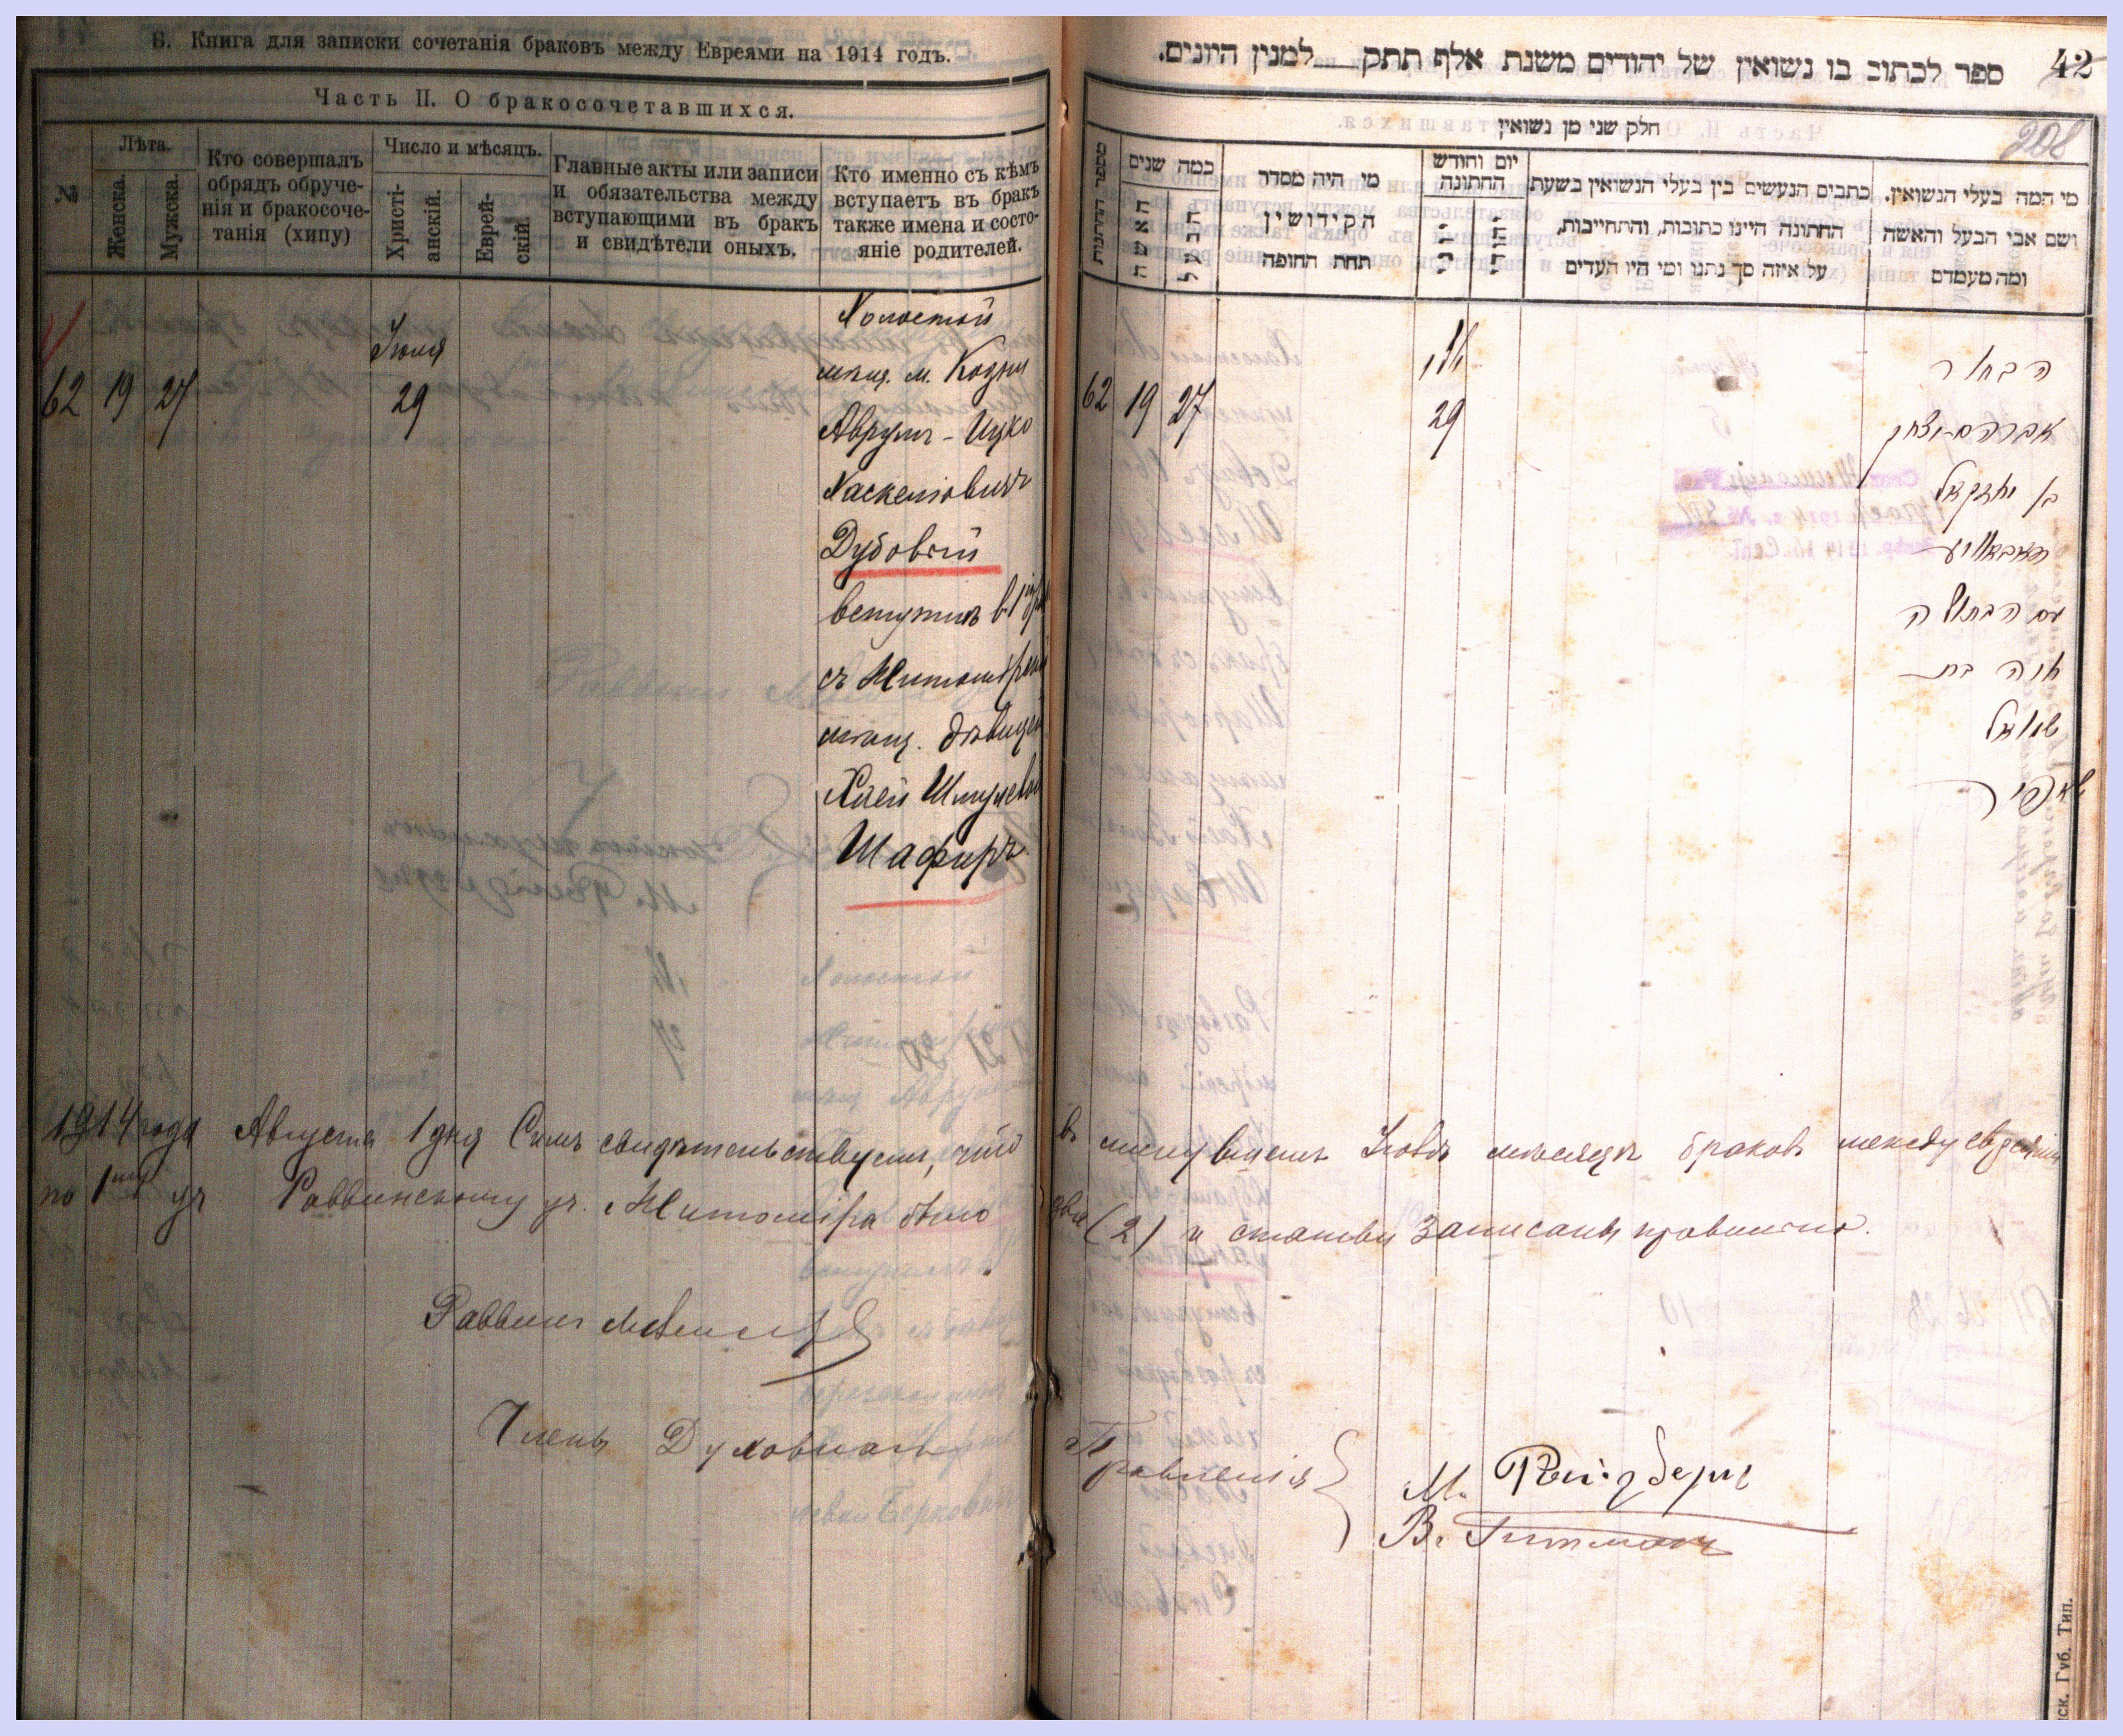 Б. Книга для записки сочетанія браковъ между Евреями на 1914 годъ.
Часть II. О бракосочетавшихся.
№
Лѣта.
Женска.
Мужска.
Кто совершалъ
обрядъ обруче-
нія и бракосоче-
танія (хипу)
Число и мѣсяцъ.
Христі-
анскій.
Еврей-
скій.
Главные акты или записи
и обязательства между
вступающими въ бракъ
и свидѣтели оныхъ.
Кто именно съ кѣмъ
вступаетъ въ бракъ
также имена и состо-
яніе родителей.
62 19 27
Іюля
29
Холостой
мѣщ. м. Кодни
Аврумъ-Ицко
Хаскелiовичъ
Дубовый
вступилъ в 1й
съ Житомірской
мѣщ. дѣвицей
Хаей Шмулевой
Шафиръ.
42
ספר לכתוב בו נשואין של יהודים משנת אלף תתק למנין היונים.
208
חלק שני מן נשואין
מספר החתונות
כמה שנים
האשה
הבעל
מי היה מסדר
הקידושין
תחת החופה
יום וחודש
החתונה
כתבים הנעשים בין בעלי הנשואין בשעת
החתונה היינו כתובות, והתחייבות,
על איזה סך נתנו ומי היו העדים
מי המה בעלי הנשואין.
ושם אבי הבעל והאשה
ומה מעמדם
62 19 27
29
הבחור
אברהם-יצחק
בן יחזקאל
עם הבתולה
חיה בת
שמואל
שאפיר
1914 года Августа 1 дня Симъ свидѣтельствуемъ, что въ минувшемъ Іюлѣ мѣсяцѣ браковъ между евреями
по 1му уч. Раввинскому уч. Житоміра было два (2) и статьи записаны правильно.
Раввинъ
Членъ Духовнаго Правленія
М.
В.
Губ. Тип.